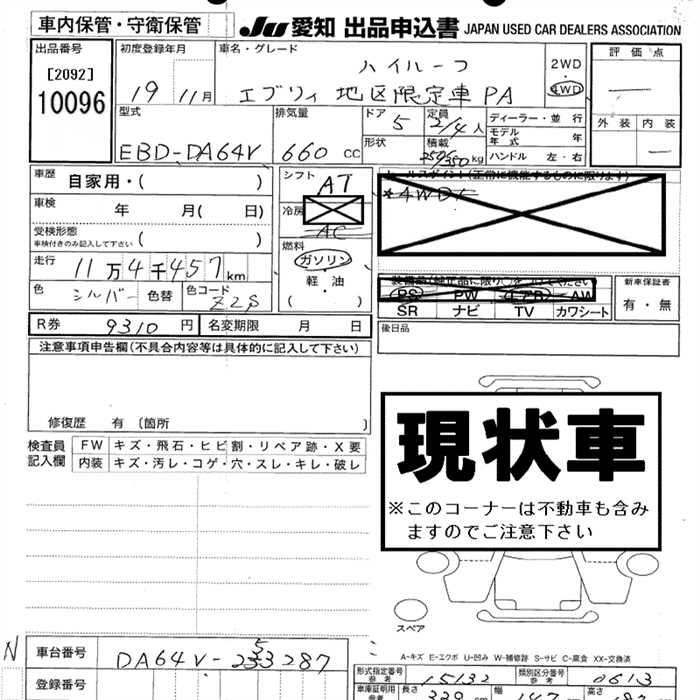 車内保管・守衛保管
JU 愛知 出品申込書 JAPAN USED CAR DEALERS ASSOCIATION
出品番号
[2092]
10096
初度登録年月
19 11月
車名・グレード
ハイルーフ
エブリィ 地区限定車 PA
2WD
4WD
評価点
外装 内装
型式
EBD-DA64V
排気量
660 cc
ドア
5
形状
定員
2/4人
積載
350/350kg
ディーラー・並行
モデル年式 年
ハンドル 左・右
車歴 自家用・( )
車検 年 月( 日)
受検形態
車検付きのみ記入して下さい ( )
走行 11万4千457km
色 シルバー 色替 色コード Z2S
シフト AT
冷房 AC
燃料
ガソリン
軽・油
( )
セールスポイント(正常に機能するものに限ります)
★4WD
装備品(純正品に限り)
PS PW エアB AW
SR ナビ TV カワシート
新車保証書
有・無
R券 9310円 名変期限 月 日
後日品
注意事項申告欄(不具合内容等は具体的に記入して下さい)
修復歴 有 〔箇所 〕
検査員記入欄
FW キズ・飛石・ヒビ割・リペア跡・X要
内装 キズ・汚レ・コゲ・穴・スレ・キレ・破レ
現状車
※このコーナーは不動車も含み
ますのでご注意下さい
スペア
A-キズ E-エクボ U-凹み W-補修跡 S-サビ C-腐食 XX-交換済
N
車台番号 DA64V-233287
5
登録番号
形式指定番号 参考 15132
類別区分番号 参考 0613
車庫証明用 参考
長さ 339 cm
幅 147
高さ